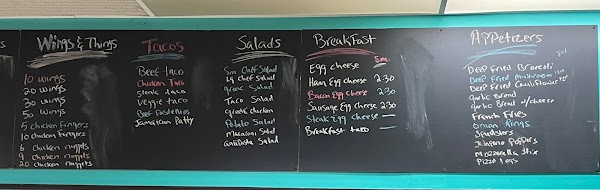 Wings & Things
10 wings
20 wings
30 wings
50 wings
5 chicken fingers
10 chicken fingers
6 chicken nuggets
9 chicken nuggets
20 chicken nuggets
Tacos
Beef taco
Chicken Taco
veggie taco
Beef Pastelitos
Jamaican Patty
Salads
Sm Chef Salad
Lg Chef Salad
greek Salad
Taco Salad
greek chicken
Potato Salad
Macaroni Salad
Antipasta Salad
Breakfast
Sm.
Egg cheese
Ham Egg cheese 2.30
Bacon Egg cheese 2.30
Sausage Egg cheese 2.30
Steak Egg cheese
Breakfast taco
Appetizers
Deep Fried Brocoli
Deep Fried Mushroom
Deep Fried Cauliflower
garlic Bread
garlic Bread w/cheese
French Fries
Onion Rings
Jalapeno Poppers
Mozzarella Stix
Pizza Logs